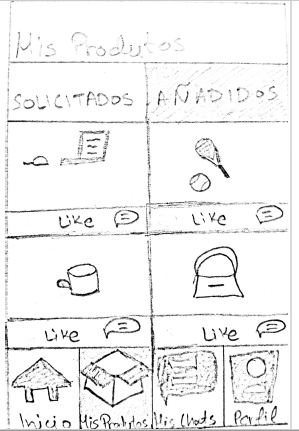 Mis Produtos
SOLICITADOS AÑADIDOS
Like Like
Like Like
Inicio Mis Produtos Mis Chats Perfil